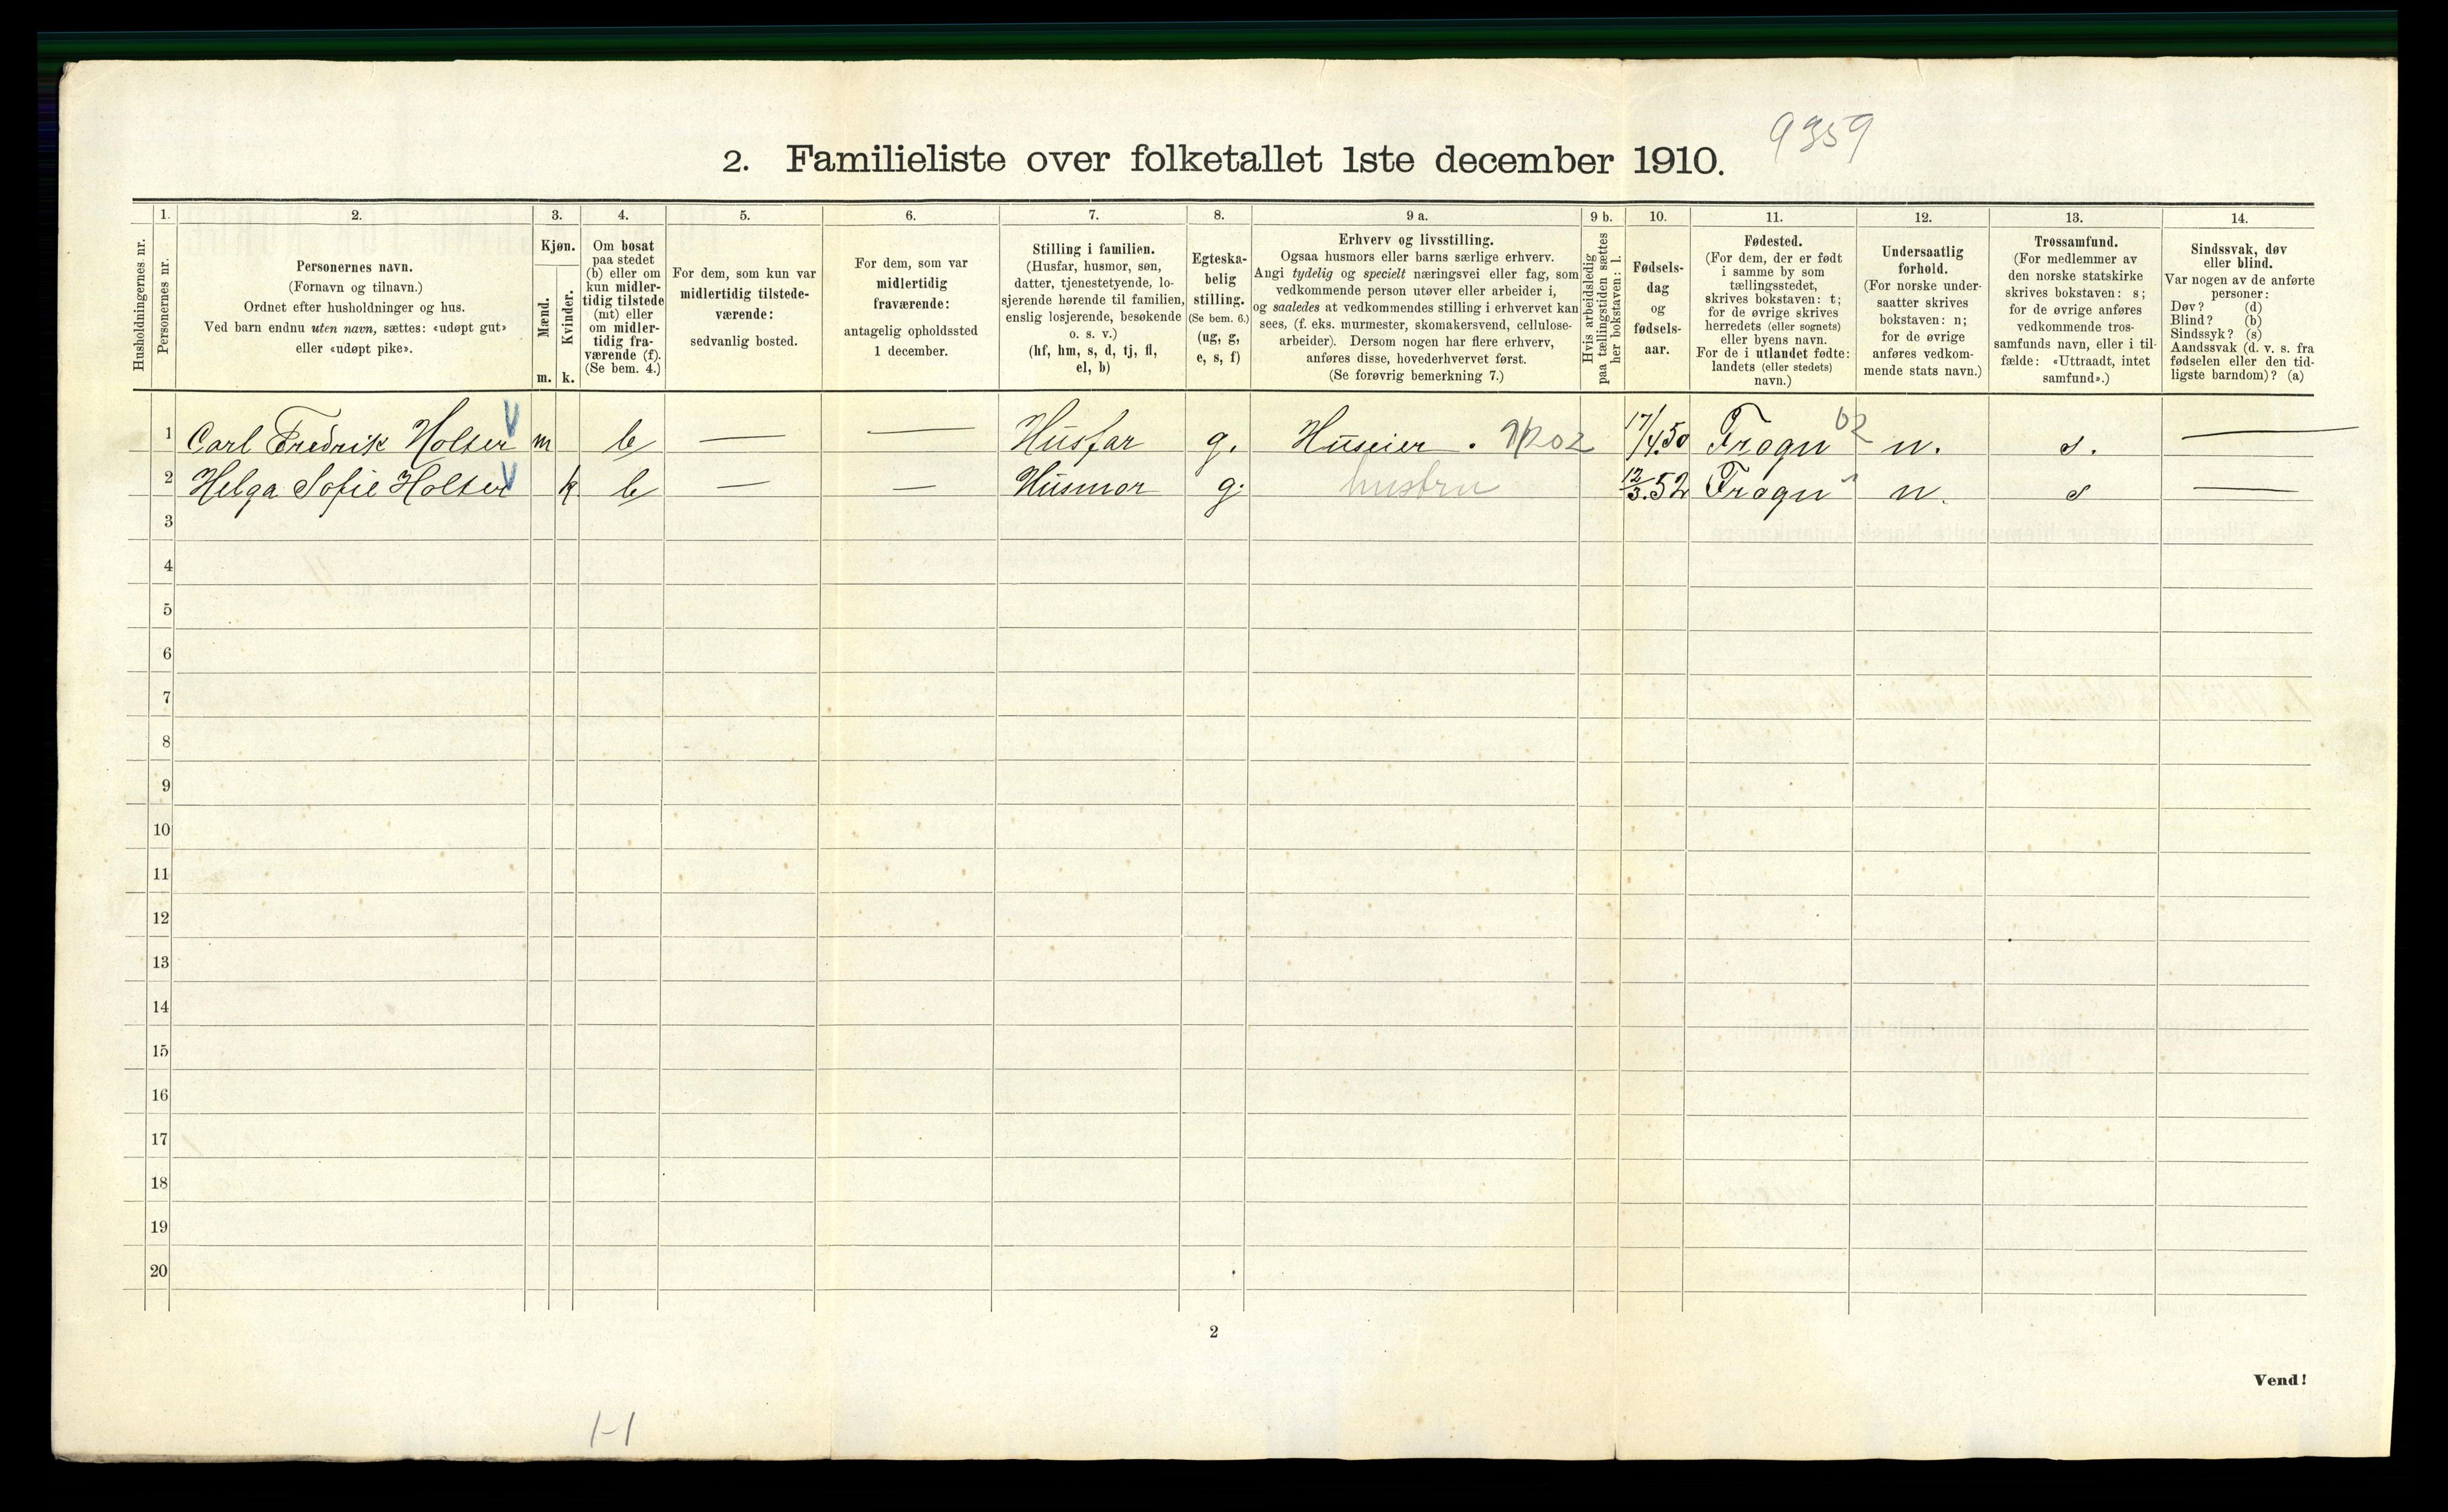 9359
2. Familieliste over folketallet 1ste december 1910.
Husholdningernes nr.
1.
Personernes nr.
2.
Personernes navn.
(Fornavn og tilnavn.)
Ordnet efter husholdninger og hus.
Ved barn endnu uten navn, sættes: «udøpt gut»
eller «udøpt pike».
3.
Kjøn.
Mænd.
Kvinder.
m. k.
4.
Om bosat
paa stedet
(b) eller om
kun midler-
tidig tilstede
(mt) eller
om midler-
tidig fra-
værende (f).
(Se bem. 4.)
5.
For dem, som kun var
midlertidig tilstede-
værende:
sedvanlig bosted.
6.
For dem, som var
midlertidig
fraværende:
antagelig opholdssted
1 december.
7.
Stilling i familien.
(Husfar, husmor, søn,
datter, tjenestetyende, lo-
sjerende hørende til familien,
enslig losjerende, besøkende
o. s. v.)
(hf, hm, s, d, tj, fl,
el, b)
8.
Egteska-
belig
stilling.
(Se bem. 6.)
(ug, g,
e, s, f)
9 a.
Erhverv og livsstilling.
Ogsaa husmors eller barns særlige erhverv.
Angi tydelig og specielt næringsvei eller fag, som
vedkommende person utøver eller arbeider i,
og saaledes at vedkommendes stilling i erhvervet kan
sees, (f. eks. murmester, skomakersvend, cellulose-
arbeider). Dersom nogen har flere erhverv,
anføres disse, hovederhvervet først.
(Se forøvrig bemerkning 7.)
9 b.
Hvis arbeidsledig
paa tællingstiden sættes
her bokstaven: l.
10.
Fødsels-
dag
og
fødsels-
aar.
11.
Fødested.
(For dem, der er født
i samme by som
tællingsstedet,
skrives bokstaven: t;
for de øvrige skrives
herredets (eller sognets)
eller byens navn.
For de i utlandet fødte:
landets (eller stedets)
navn.)
12.
Undersaatlig
forhold.
(For norske under-
saatter skrives
bokstaven: n;
for de øvrige
anføres vedkom-
mende stats navn.)
13.
Trossamfund.
(For medlemmer av
den norske statskirke
skrives bokstaven: s;
for de øvrige anføres
vedkommende tros-
samfunds navn, eller i til-
fælde: «Uttraadt, intet
samfund».)
14.
Sindssvak, døv
eller blind.
Var nogen av de anførte
personer:
Døv? (d)
Blind? (b)
Sindssyk? (s)
Aandssvak (d. v. s. fra
fødselen eller den tid-
ligste barndom)? (a)
1 Carl Fredrik Holter m b — — Husfar g. Huseier. 17/4.50 Frogn 02 n. s. —
2 Helga Sofie Holter k b — — Husmor g. hustru 12/3.52 Frogn " n. s —
3
4
5
6
7
8
9
10
11
12
13
14
15
16
17
18
19
20
2
Vend!
1-1